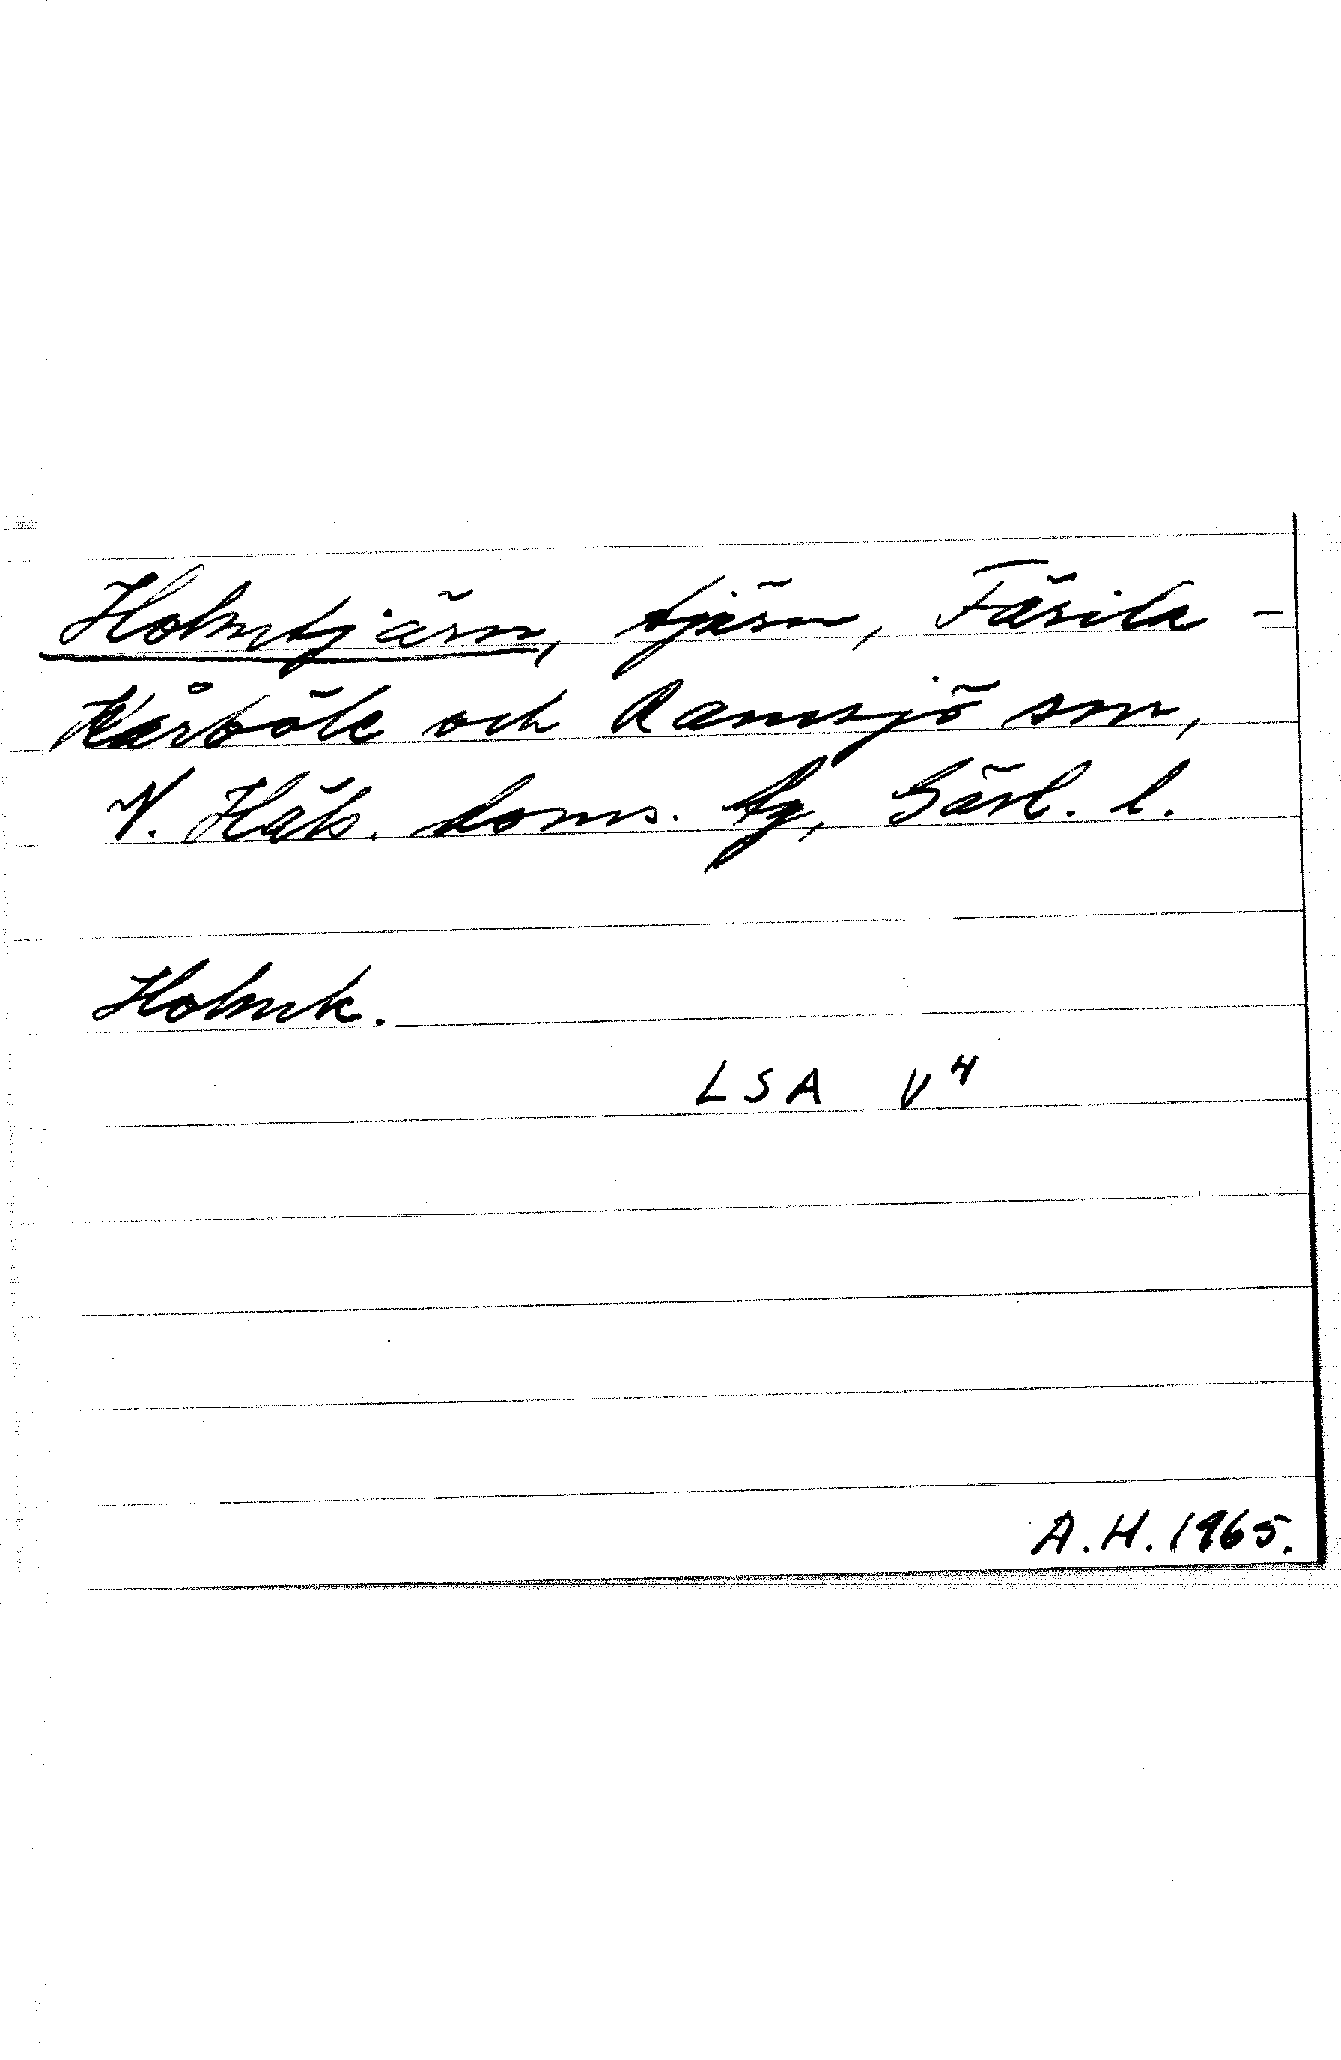 Holmtjärn, tjärn, Färila -
Kårböle och Ramsjö snr,
N. Häls. doms. tg, Gävl. l.
Holmk.
LSA V4
A.H. 1965.